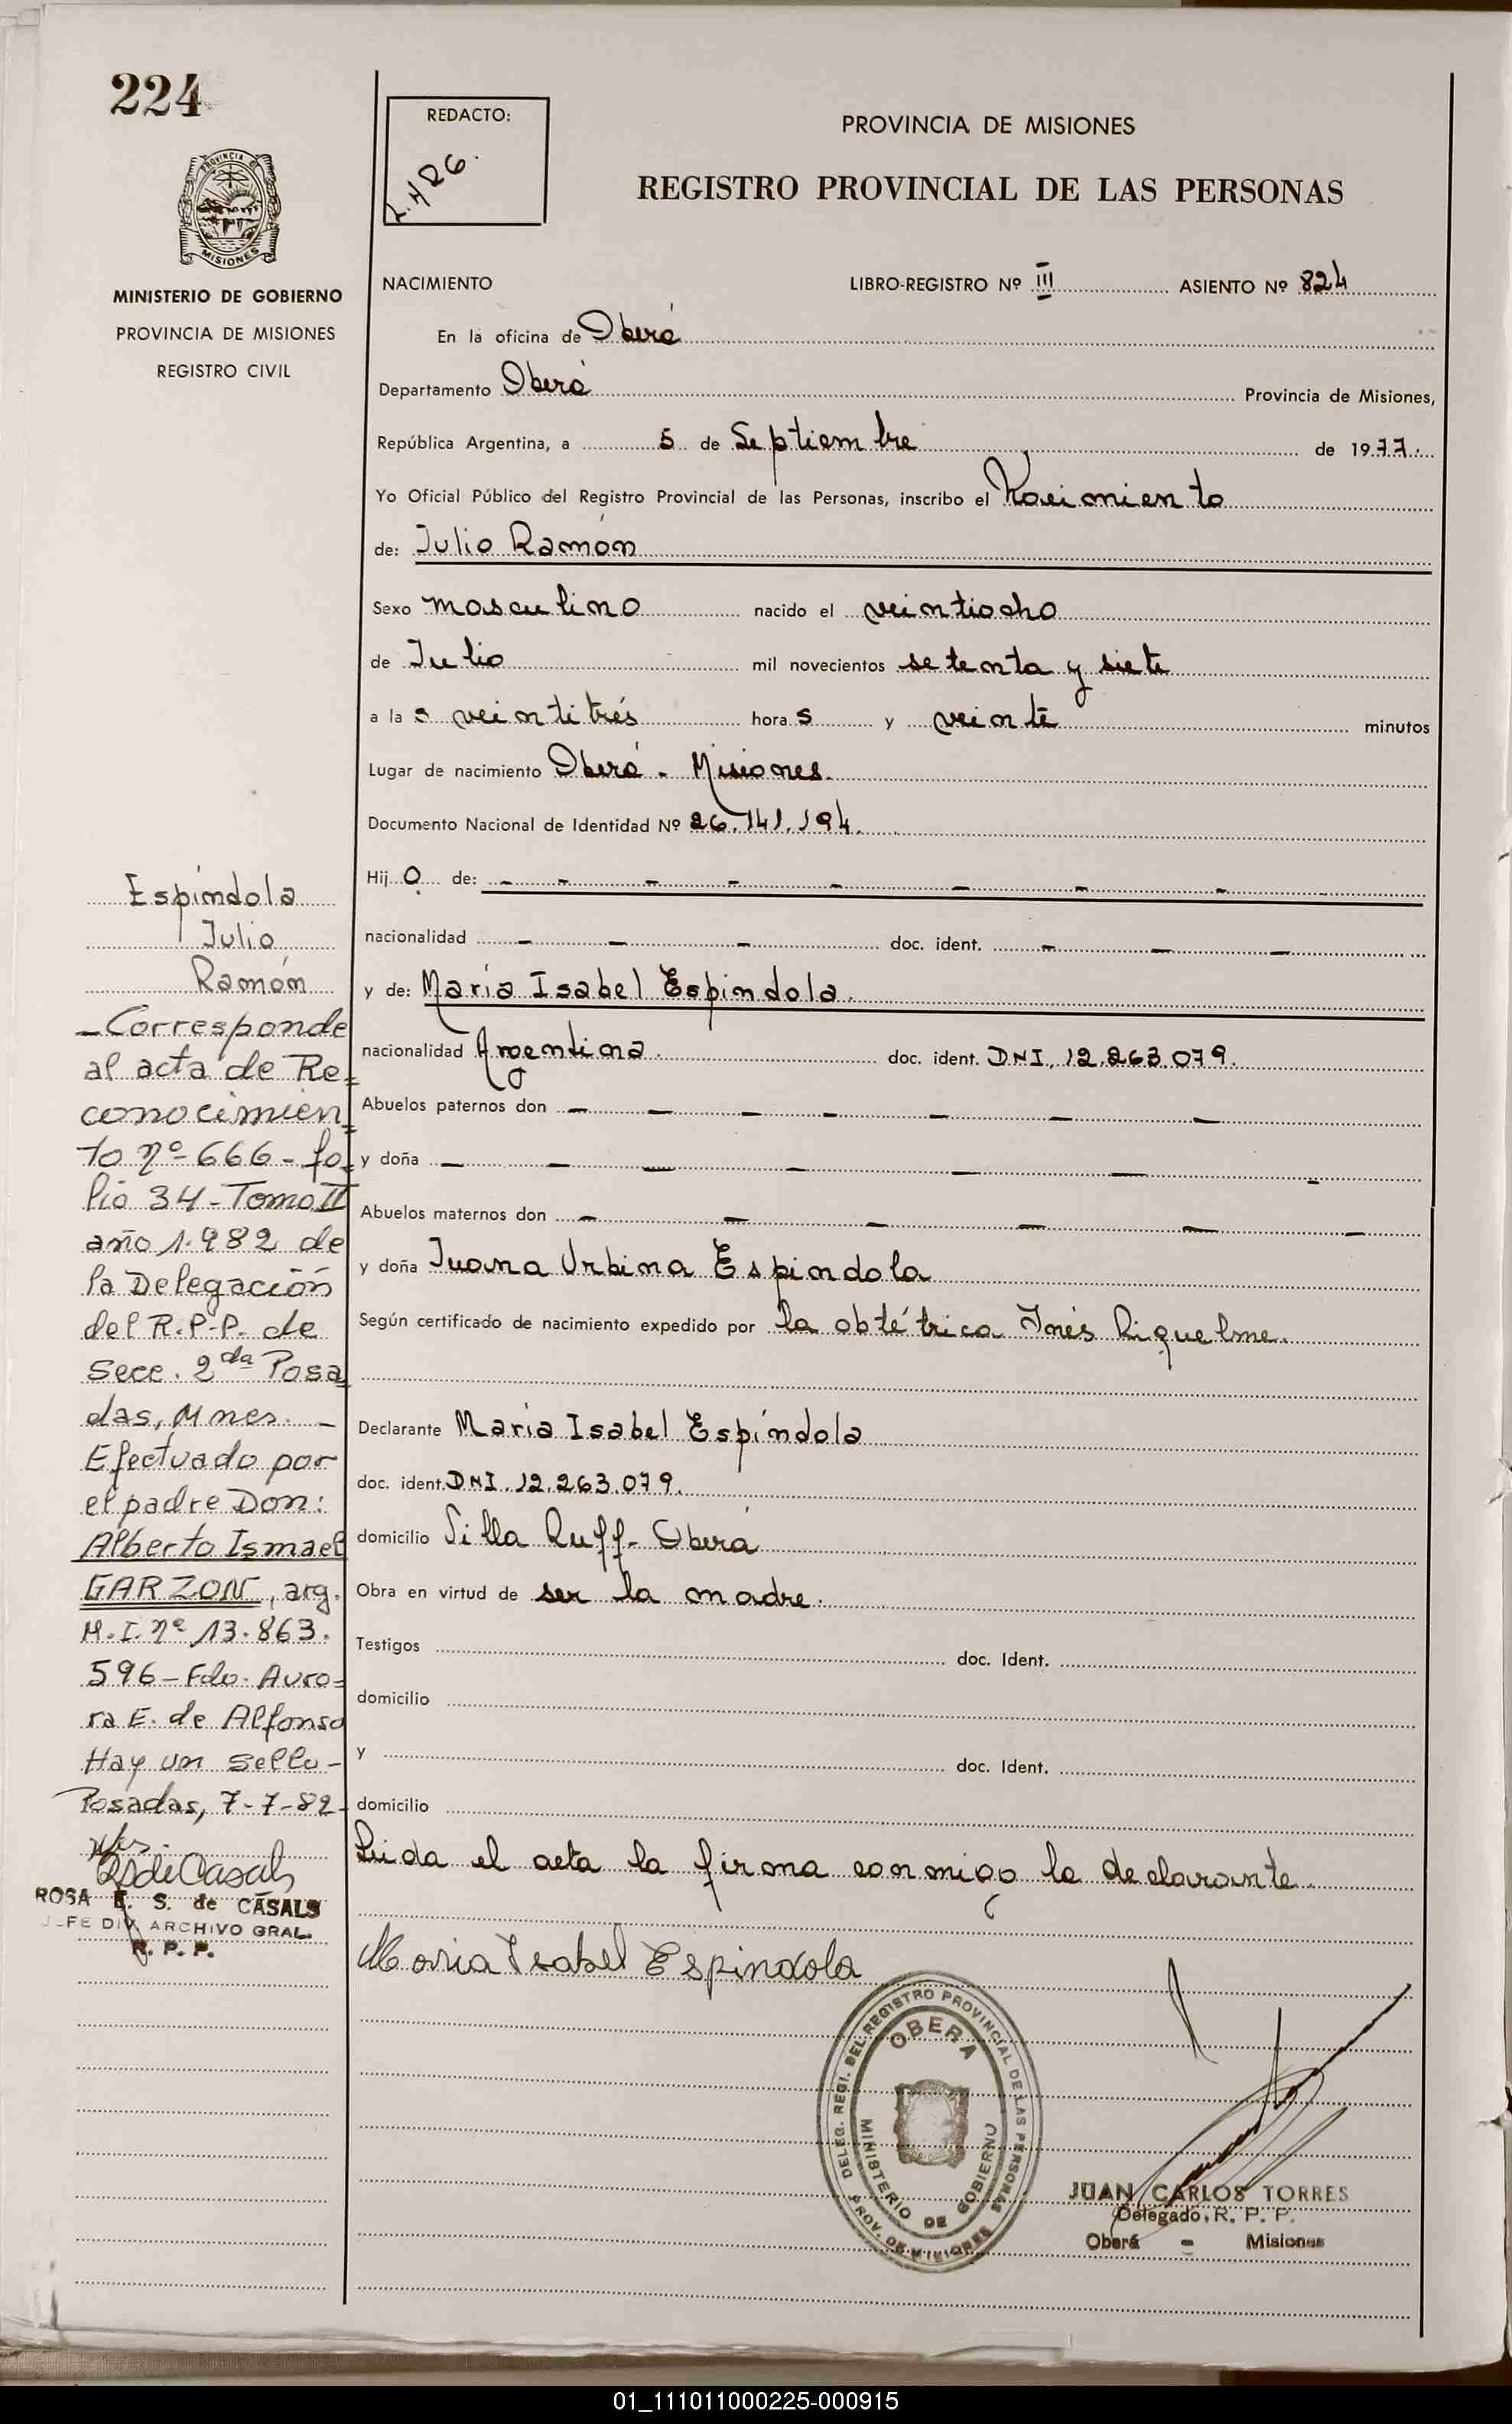 224
PROVINCIA DE
MISIONES
MINISTERIO DE GOBIERNO
PROVINCIA DE MISIONES
REGISTRO CIVIL
Espíndola
Julio
Ramón
_Corresponde
al acta de Re=
conocimien=
to nº 666 - fo=
lio 34 - Tomo II
año 1.982 de
la Delegación
del R.P.P. de
Secc. 2da Posa=
das, Mnes. _
Efectuado por
el padre Don:
Alberto Ismael
GARZON, arg.
M.I. nº 13.863.
596 - Fdo. Auro=
ra E. de Alfonso
Hay un sello -
Posadas, 7-7-82-
ROSA E. S. de CASALS
JEFE DIV. ARCHIVO GRAL.
R. P. P.
REDACTO:
PROVINCIA DE MISIONES
REGISTRO PROVINCIAL DE LAS PERSONAS
NACIMIENTO LIBRO-REGISTRO Nº III ASIENTO Nº 824
En la oficina de Oberá
Departamento Oberá Provincia de Misiones,
República Argentina, a 5 de Septiembre de 1977.
Yo Oficial Público del Registro Provincial de las Personas, inscribo el Nacimiento
de: Julio Ramón
Sexo masculino nacido el veintiocho
de Julio mil novecientos setenta y siete
a las veintitrés horas y veinte minutos
Lugar de nacimiento Oberá - Misiones.
Documento Nacional de Identidad Nº 26.141.194.
Hijo de: - - - - - - - -
nacionalidad - - - doc. ident. - - -
y de: María Isabel Espíndola.
nacionalidad Argentina. doc. ident. DNI. 12.263.079.
Abuelos paternos don - - - - - - -
y doña - - - - - - -
Abuelos maternos don - - - - - -
y doña Juana Urbina Espindola
Según certificado de nacimiento expedido por la obtétrica Inés Riquelme.
Declarante María Isabel Espíndola
doc. ident. DNI. 12.263.079.
domicilio Villa Ruff - Oberá
Obra en virtud de ser la madre.
Testigos doc. Ident.
domicilio
y doc. Ident.
domicilio
Leida el acta la firma conmigo la declarante.
Maria Isabel Espindola
DELEG. REGI. DEL REGISTRO PROVINCIAL DE LAS PERSONAS
OBERA
MINISTERIO DE GOBIERNO
PROV. DE MISIONES
JUAN CARLOS TORRES
Delegado, R. P. P.
Oberá - Misiones
01_111011000225-000915